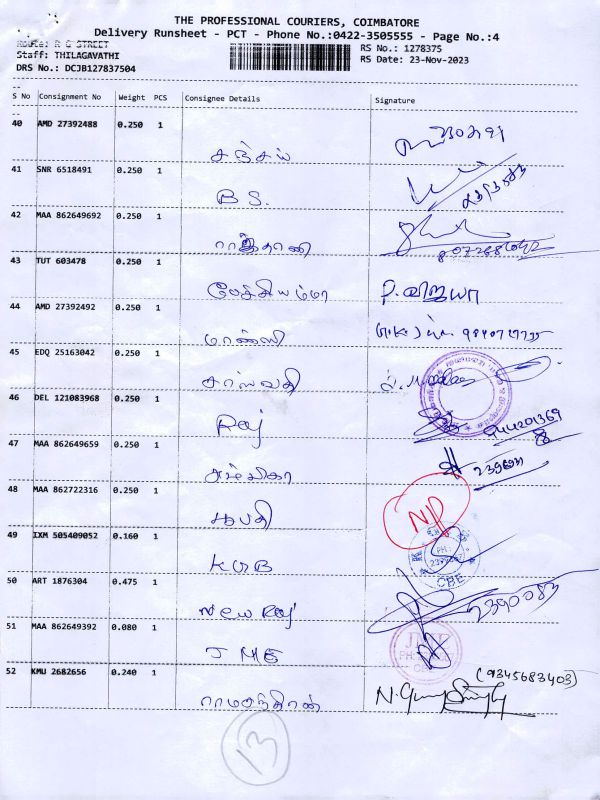 THE PROFESSIONAL COURIERS, COIMBATORE
Delivery Runsheet - PCT - Phone No.:0422-3505555 - Page No.:4
Route: R G STREET
RS No.: 1278375
Staff: THILAGAVATHI
RS Date: 23-Nov-2023
DRS No.: DCJB127837504
S No Consignment No Weight PCS Consignee Details Signature
40 AMD 27392488 0.250 1
சஞ்சய்
41 SNR 6518491 0.250 1
B S.
42 MAA 862649692 0.250 1
43 TUT 603478 0.250 1
பேச்சியம்மா P. விஜயா
44 AMD 27392492 0.250 1
மான்ஸி
45 EDQ 25163042 0.250 1
சரஸ்வதி
46 DEL 121083968 0.250 1
Raj
47 MAA 862649659 0.250 1
48 MAA 862722316 0.250 1
பூபதி NP
49 IXM 505409052 0.160 1
KGB CBE
50 ART 1876304 0.475 1
New Raj 2390083
51 MAA 862649392 0.080 1
52 KMU 2682656 0.240 1
(9345683403)
ராமசந்திரன்
13